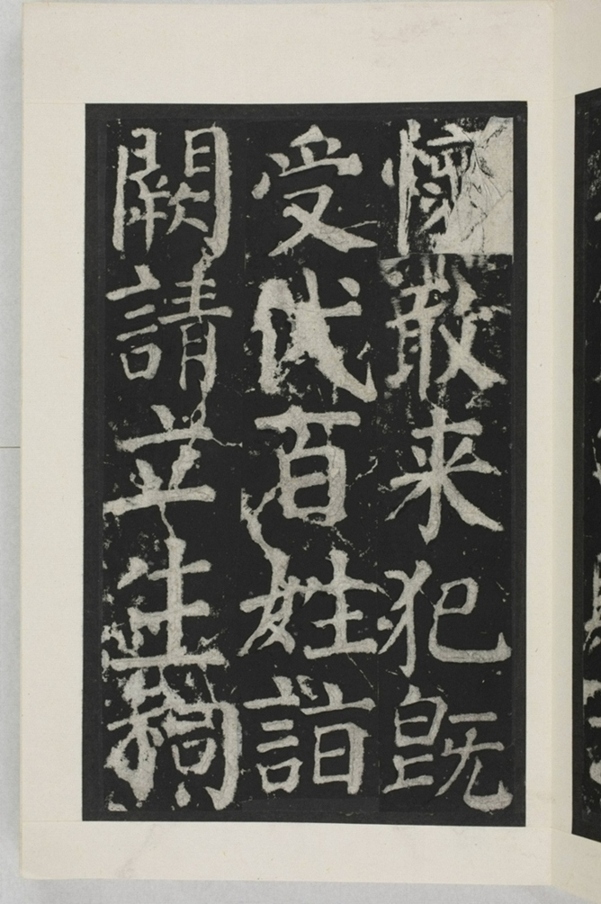 懷敢来犯既
受代百姓詣
闕請立生祠